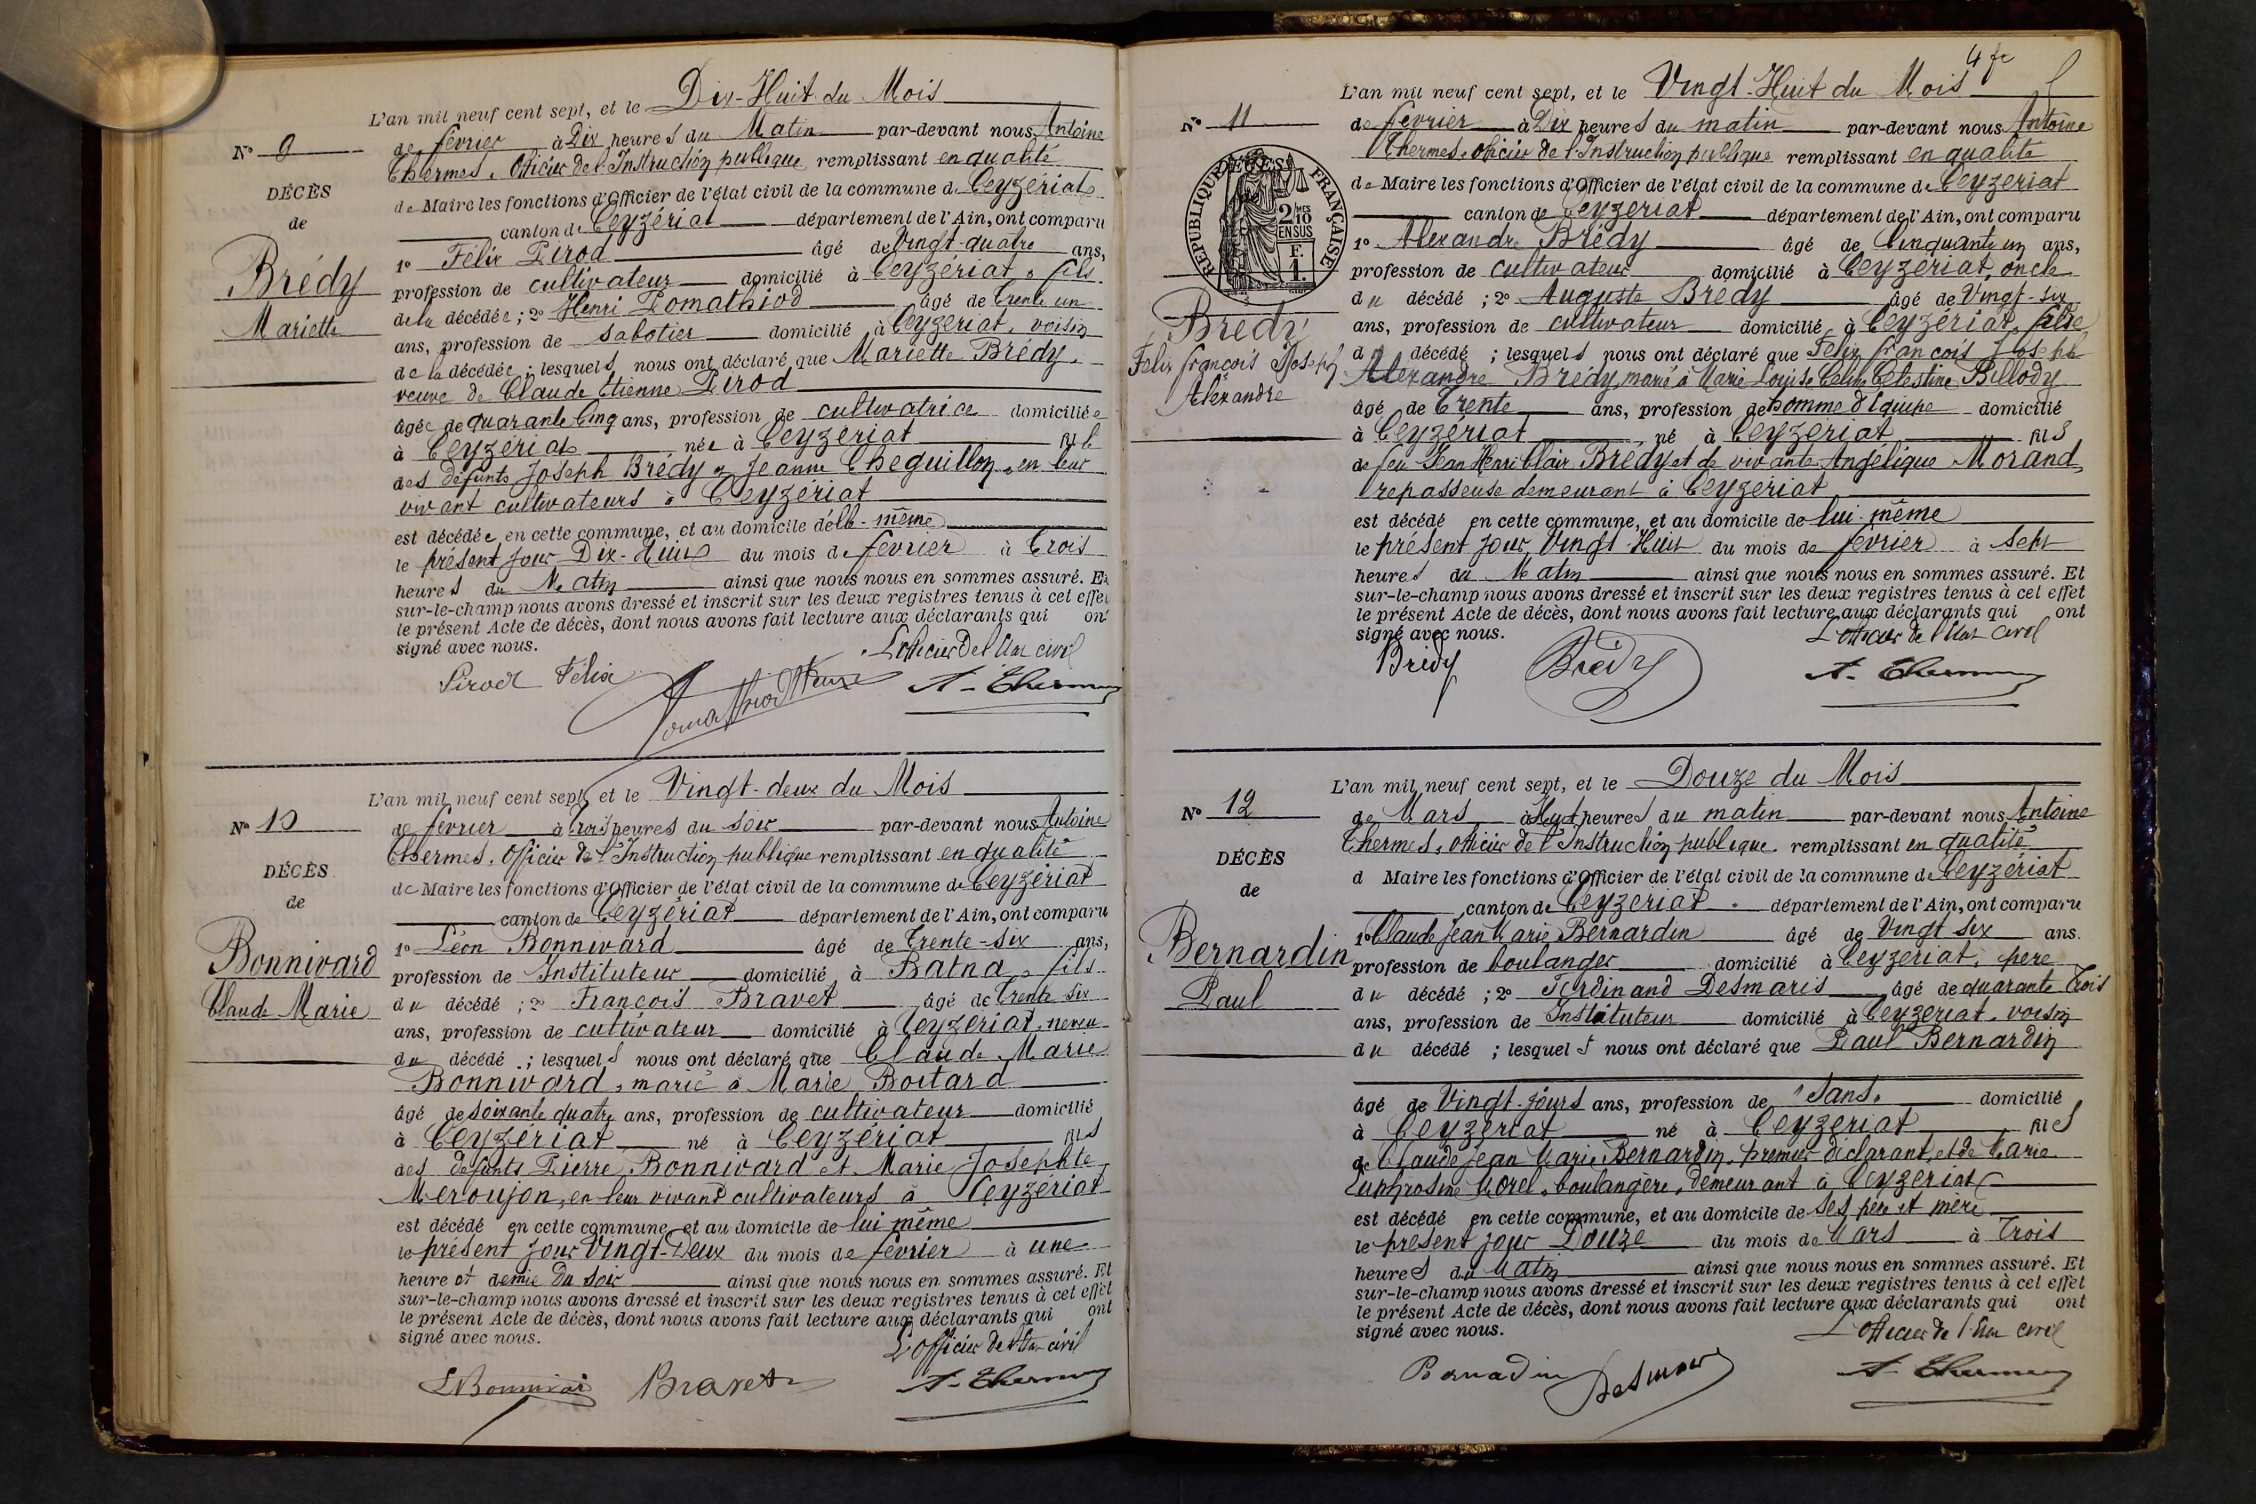 L'an mil neuf cent sept, et le Dix-Huit du Mois
N° 9
de février à Dix heures du Matin par-devant nous Antoine
Thermes, Officier de l'Instruction publique remplissant en qualité
DÉCÈS
de Maire les fonctions d'Officier de l'état civil de la commune de Ceyzériat
de
canton de Ceyzériat département de l'Ain, ont comparu
Brédy
Mariette
1° Félix Pirod âgé de Vingt-quatre ans,
profession de cultivateur domicilié à Ceyzériat, fils
de la décédée ; 2° Henri Pomathiod âgé de Trente un
ans, profession de sabotier domicilié à Ceyzériat, voisin
de la décédée ; lesquels nous ont déclaré que Mariette Brédy,
veuve de Claude Etienne Pirod
âgée de quarante Cinq ans, profession de cultivatrice domiciliée
à Ceyzériat née à Ceyzériat fille
des défunts Joseph Brédy et Jeanne Cheguillon, en leur
vivant cultivateurs à Ceyzériat
est décédée en cette commune, et au domicile d'elle-même
le présent jour Dix-Huit du mois de février à Trois
heures du Matin ainsi que nous nous en sommes assuré. Et
sur-le-champ nous avons dressé et inscrit sur les deux registres tenus à cet effet
le présent Acte de décès, dont nous avons fait lecture aux déclarants qui ont
signé avec nous.
L'officier de l'Etat civil
Pirod Félix Pomathiod Henri A. Thermes
L'an mil neuf cent sept, et le Vingt-deux du Mois
N° 10
de février à Trois heures du soir par-devant nous Antoine
Thermes, Officier de l'Instruction publique remplissant en qualité
DÉCÈS
de Maire les fonctions d'Officier de l'état civil de la commune de Ceyzériat
de
canton de Ceyzériat département de l'Ain, ont comparu
Bonnivard
Claude Marie
1° Léon Bonnivard âgé de Trente-six ans,
profession de Instituteur domicilié à Batna, fils
du décédé ; 2° François Bravet âgé de Trente six
ans, profession de cultivateur domicilié à Ceyzériat, neveu
du décédé ; lesquels nous ont déclaré que Claude Marie
Bonnivard, marié à Marie Boitard
âgé de soixante quatre ans, profession de cultivateur domicilié
à Ceyzériat né à Ceyzériat fils
des défunts Pierre Bonnivard et Marie Josephte
Meroujon, en leur vivant cultivateurs à Ceyzériat
est décédé en cette commune, et au domicile de lui même
le présent jour Vingt-Deux du mois de février à une
heure et demie du soir ainsi que nous nous en sommes assuré. Et
sur-le-champ nous avons dressé et inscrit sur les deux registres tenus à cet effet
le présent Acte de décès, dont nous avons fait lecture aux déclarants qui ont
signé avec nous.
L'officier de l'Etat civil
LBonnivard Bravet A. Thermes
4 fe
L'an mil neuf cent sept, et le Vingt-Huit du Mois
N° 11
de février à Dix heures du matin par-devant nous Antoine
Thermes, officier de l'Instruction publique remplissant en qualité
DÉCÈS
RÉPUBLIQUE FRANÇAISE
2 MES 10 EN SUS
F. 1.
de Maire les fonctions d'Officier de l'état civil de la commune de Ceyzériat
canton de Ceyzériat département de l'Ain, ont comparu
Brédy
Félix François Joseph
Alexandre
1° Alexandre Brédy âgé de Cinquante un ans,
profession de cultivateur domicilié à Ceyzériat, oncle
du décédé ; 2° Auguste Brédy âgé de Vingt-six
ans, profession de cultivateur domicilié à Ceyzériat, frère
d décédé ; lesquels nous ont déclaré que Félix François Joseph
Alexandre Brédy, marié à Marie Louise Celina Célestine Billody
âgé de Trente ans, profession de homme d'équipe domicilié
à Ceyzériat né à Ceyzériat fils
de feu Jean Henri Clair Brédy et de vivante Angélique Morand,
repasseuse demeurant à Ceyzériat
est décédé en cette commune, et au domicile de lui-même
le présent jour Vingt-Huit du mois de février à sept
heures du Matin ainsi que nous nous en sommes assuré. Et
sur-le-champ nous avons dressé et inscrit sur les deux registres tenus à cet effet
le présent Acte de décès, dont nous avons fait lecture aux déclarants qui ont
signé avec nous.
L'officier de l'Etat civil
Brédy Brédy A. Thermes
L'an mil neuf cent sept, et le Douze du Mois
N° 12
de Mars à Huit heures du matin par-devant nous Antoine
Thermes, officier de l'Instruction publique remplissant en qualité
DÉCÈS
d Maire les fonctions d'Officier de l'état civil de la commune de Ceyzériat
de
canton de Ceyzériat département de l'Ain, ont comparu
Bernardin
Paul
1° Claude Jean Marie Bernardin âgé de Vingt six ans.
profession de boulanger domicilié à Ceyzériat, père
du décédé ; 2° Ferdinand Desmaris âgé de quarante Trois
ans, profession de Instituteur domicilié à Ceyzériat, voisin
du décédé ; lesquels nous ont déclaré que Paul Bernardin
âgé de Vingt-jours ans, profession de Sans. domicilié
à Ceyzériat né à Ceyzériat fils
de Claude Jean Marie Bernardin, premier déclarant, et de Marie
Euphrosine Morel, boulangère, demeurant à Ceyzériat
est décédé en cette commune, et au domicile de ses père et mère
le présent jour Douze du mois de Mars à Trois
heures du Matin ainsi que nous nous en sommes assuré. Et
sur-le-champ nous avons dressé et inscrit sur les deux registres tenus à cet effet
le présent Acte de décès, dont nous avons fait lecture aux déclarants qui ont
signé avec nous.
L'officier de l'Etat civil
Bernadin Desmaris A. Thermes